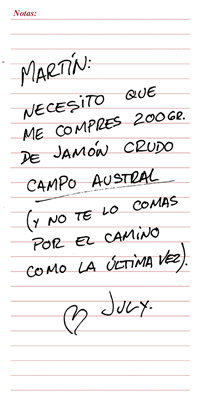 Notas:
MARTÍN:
NECESITO QUE
ME COMPRES 200GR.
DE JAMÓN CRUDO
CAMPO AUSTRAL
(Y NO TE LO COMAS
POR EL CAMINO
COMO LA ÚLTIMA VEZ).
♡ JULY.